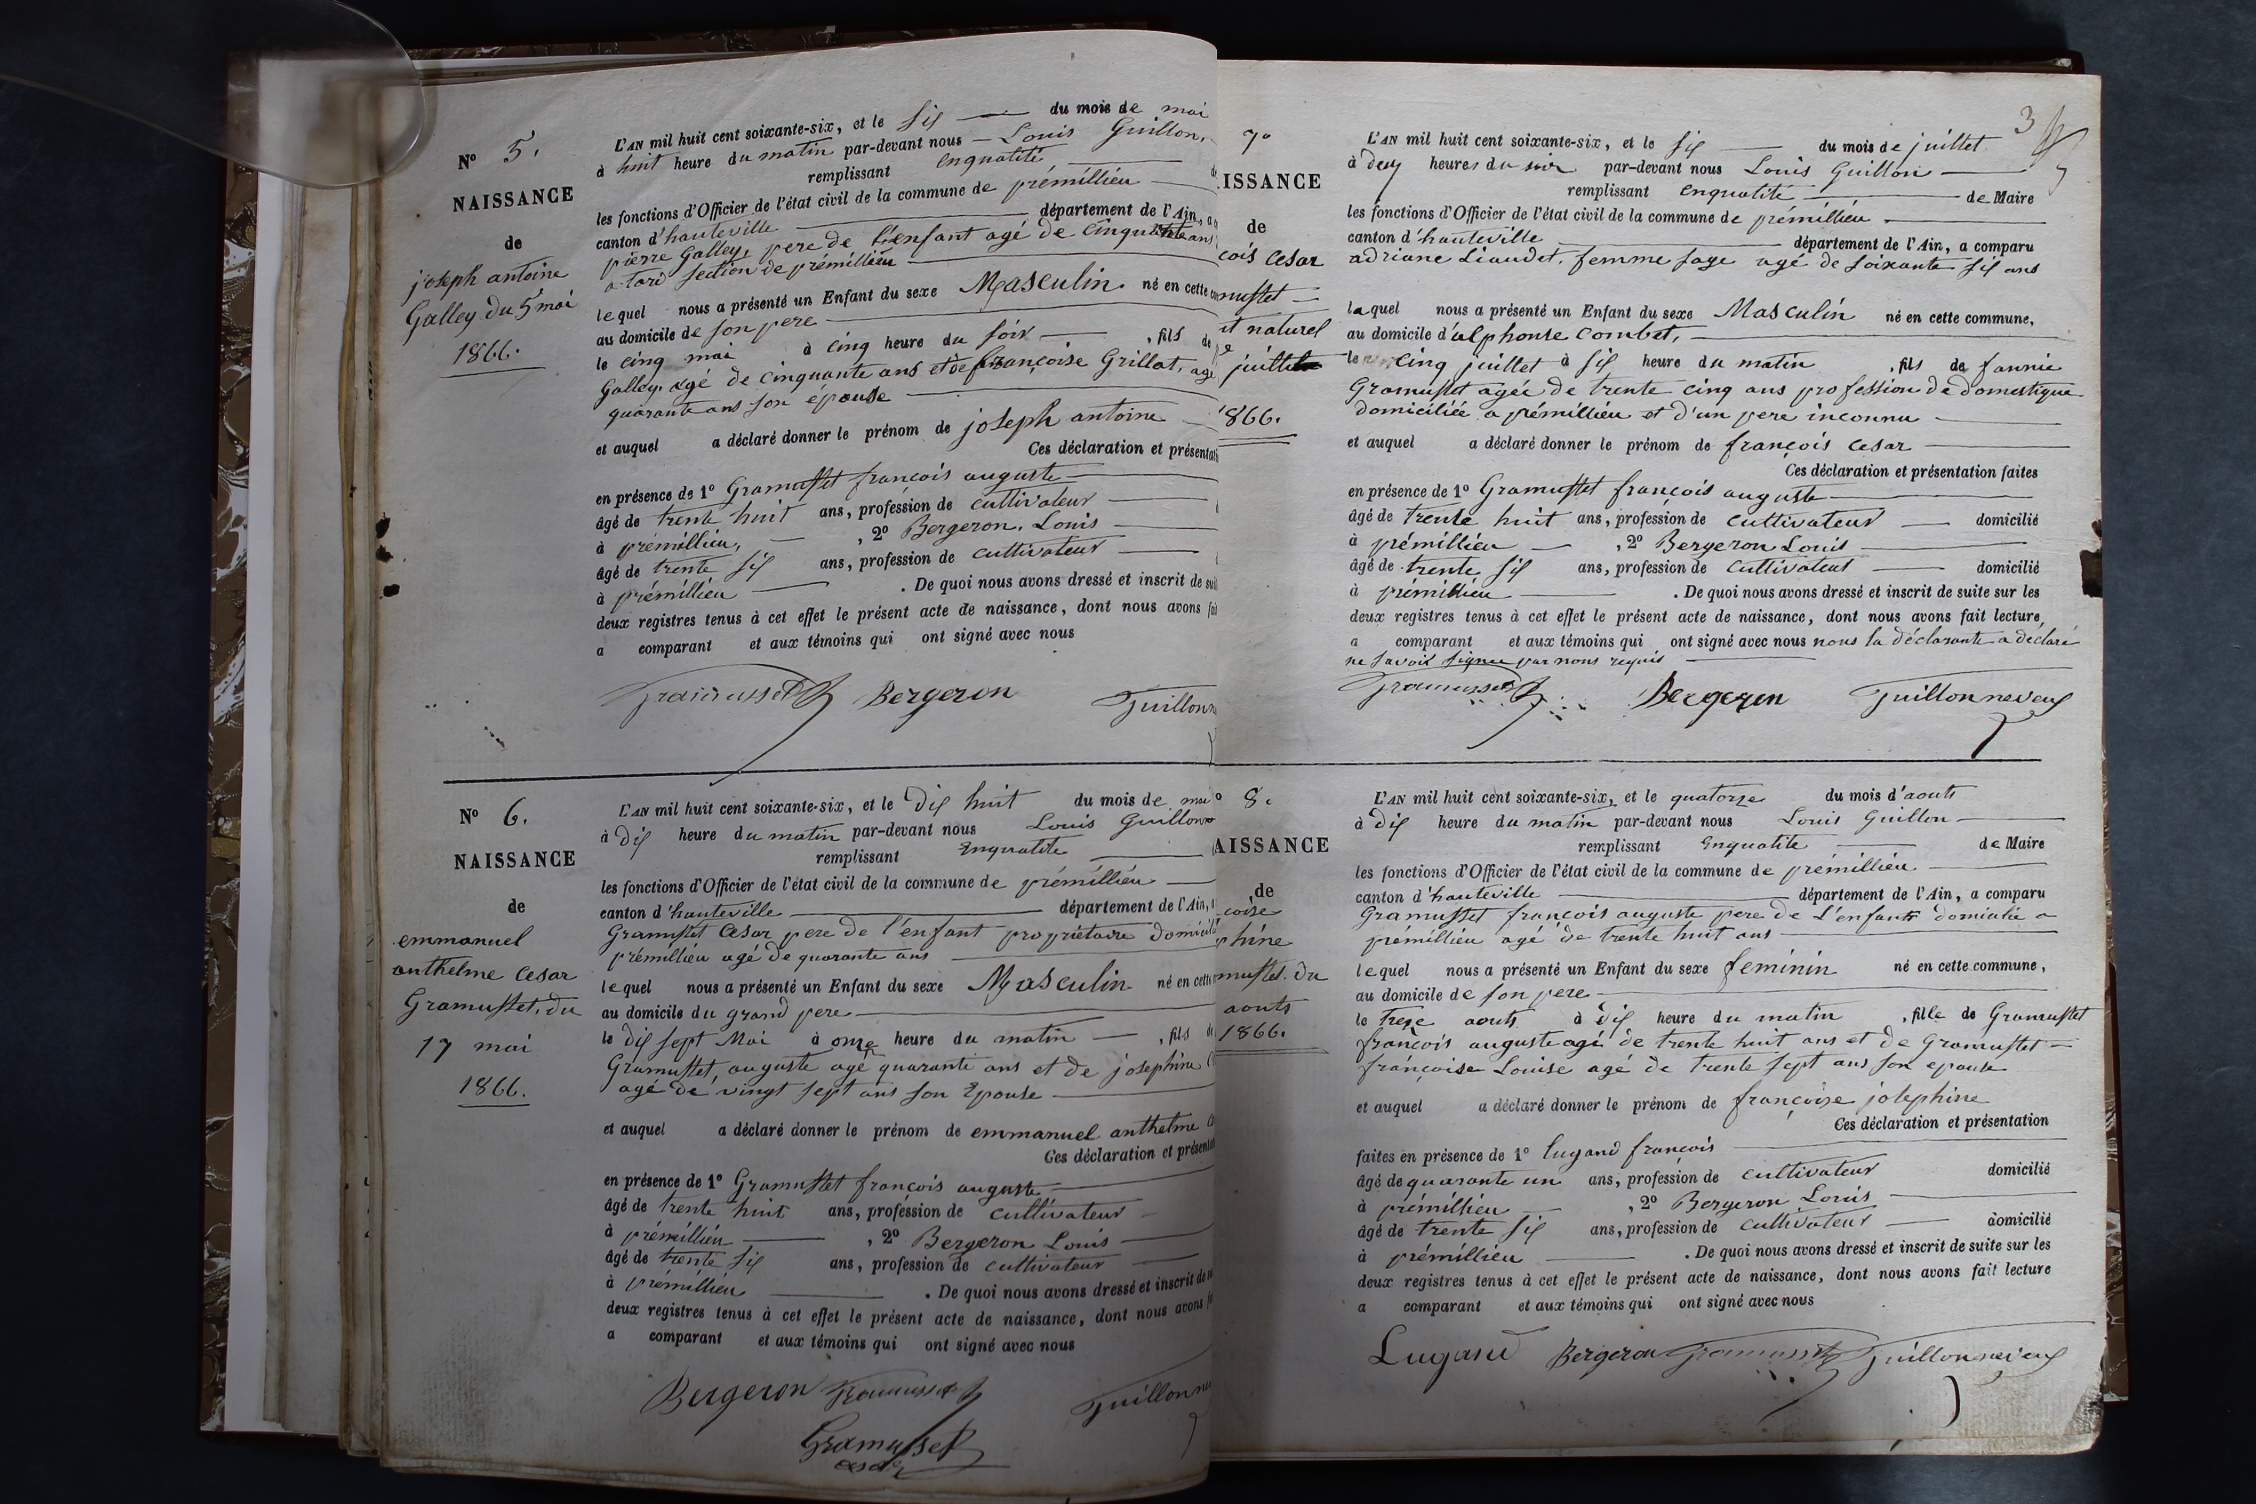 N° 5.
NAISSANCE
de
joseph antoine
Galley du 5 mai
1866.
L'AN mil huit cent soixante-six, et le six du mois de mai
à huit heure du matin par-devant nous Louis Guillon,
remplissant enqualité
les fonctions d'Officier de l'état civil de la commune de prémillieu
canton d'hauteville département de l'Ain, a
pierre Galley, pere de l'enfant agé de cinquante ans
a tard section de prémillieu
lequel nous a présenté un Enfant du sexe Masculin né en cette
au domicile de son pere
le cinq mai à cinq heure du soir , fils de
Galley. agé de cinquante ans et de françoise Grillat, agé
quarante ans son épouse
et auquel a déclaré donner le prénom de joseph antoine
Ces déclaration et présentati
en présence de 1° Gramusset françois auguste
âgé de trente huit ans, profession de cultivateur
à prémillieu, , 2° Bergeron, Louis
âgé de trente six ans, profession de cultivateur
à prémillieu . De quoi nous avons dressé et inscrit de sui
deux registres tenus à cet effet le présent acte de naissance, dont nous avons fai
a comparant et aux témoins qui ont signé avec nous
Gramusset Bergeron Guillon n
N° 6.
NAISSANCE
de
emmanuel
anthelme Cesar
Gramusset, du
17 mai
1866.
L'AN mil huit cent soixante-six, et le dix huit du mois de mai
à dix heure du matin par-devant nous Louis Guillon
remplissant enqualité
les fonctions d'Officier de l'état civil de la commune de prémillieu
canton d'hauteville département de l'Ain,
Gramusset Cesar pere de l'enfant propriétaire domicilié
prémillieu agé de quarante ans
lequel nous a présenté un Enfant du sexe Masculin né en cette
au domicile du grand pere
le dix sept Mai à onze heure du matin , fils de
Gramusset, auguste agé quarante ans et de josephine
agé de vingt sept ans son épouse
et auquel a déclaré donner le prénom de emmanuel anthelme
Ces déclaration et présentat
en présence de 1° Gramusset françois auguste
âgé de trente huit ans, profession de cultivateur
à prémillieu , 2° Bergeron Louis
âgé de trente six ans, profession de cultivateur
à prémillieu . De quoi nous avons dressé et inscrit de
deux registres tenus à cet effet le présent acte de naissance, dont nous avons
a comparant et aux témoins qui ont signé avec nous
Bergeron Gramusset Guillon
Gramusset
cesar
3
7°
ISSANCE
de
cois Cesar
musset
t naturel
juillet
1866.
L'AN mil huit cent soixante-six, et le six du mois de juillet
à deux heures du soir par-devant nous Louis Guillon
remplissant enqualité de Maire
les fonctions d'Officier de l'état civil de la commune de prémillieu
canton d'hauteville département de l'Ain, a comparu
adriane Liaudet, femme sage agé de soixante six ans
laquel nous a présenté un Enfant du sexe Masculin né en cette commune,
au domicile d'alphonse Combet,
le cinq juillet à six heure du matin , fils de fannie
Gramusset agée de trente cinq ans profession de domestique
domiciliée a prémillieu et d'un pere inconnu
et auquel a déclaré donner le prénom de françois Cesar
Ces déclaration et présentation faites
en présence de 1° Gramusset françois auguste
âgé de trente huit ans, profession de cultivateur domicilié
à prémillieu , 2° Bergeron Louis
âgé de trente six ans, profession de cultivateur domicilié
à prémillieu . De quoi nous avons dressé et inscrit de suite sur les
deux registres tenus à cet effet le présent acte de naissance, dont nous avons fait lecture
a comparant et aux témoins qui ont signé avec nous nous la déclarante a déclaré
ne savoir signer par nous requis
Gramusset Bergeron Guillon neveux
° 8.
AISSANCE
de
coise
phine
musset. du
aouts
1866.
L'AN mil huit cent soixante-six, et le quatorze du mois d'aouts
à dix heure du matin par-devant nous Louis Guillon
remplissant enqualité de Maire
les fonctions d'Officier de l'état civil de la commune de prémillieu
canton d'hauteville département de l'Ain, a comparu
Gramusset françois auguste pere de l'enfant domicilié a
prémillieu agé de trente huit ans
lequel nous a présenté un Enfant du sexe feminin né en cette commune,
au domicile de son pere
le treze aouts à dix heure du matin , fille de Gramusset
françois auguste agé de trente huit ans et de Gramusset
françoise Louise agé de trente sept ans son epouse
et auquel a déclaré donner le prénom de françoise josephine
Ces déclaration et présentation
faites en présence de 1° Lugand françois
âgé de quarante un ans, profession de cultivateur domicilié
à prémillieu , 2° Bergeron Louis
âgé de trente six ans, profession de cultivateur domicilié
à prémillieu . De quoi nous avons dressé et inscrit de suite sur les
deux registres tenus à cet effet le présent acte de naissance, dont nous avons fait lecture
a comparant et aux témoins qui ont signé avec nous
Lugand Bergeron Gramusset Guillon neveux